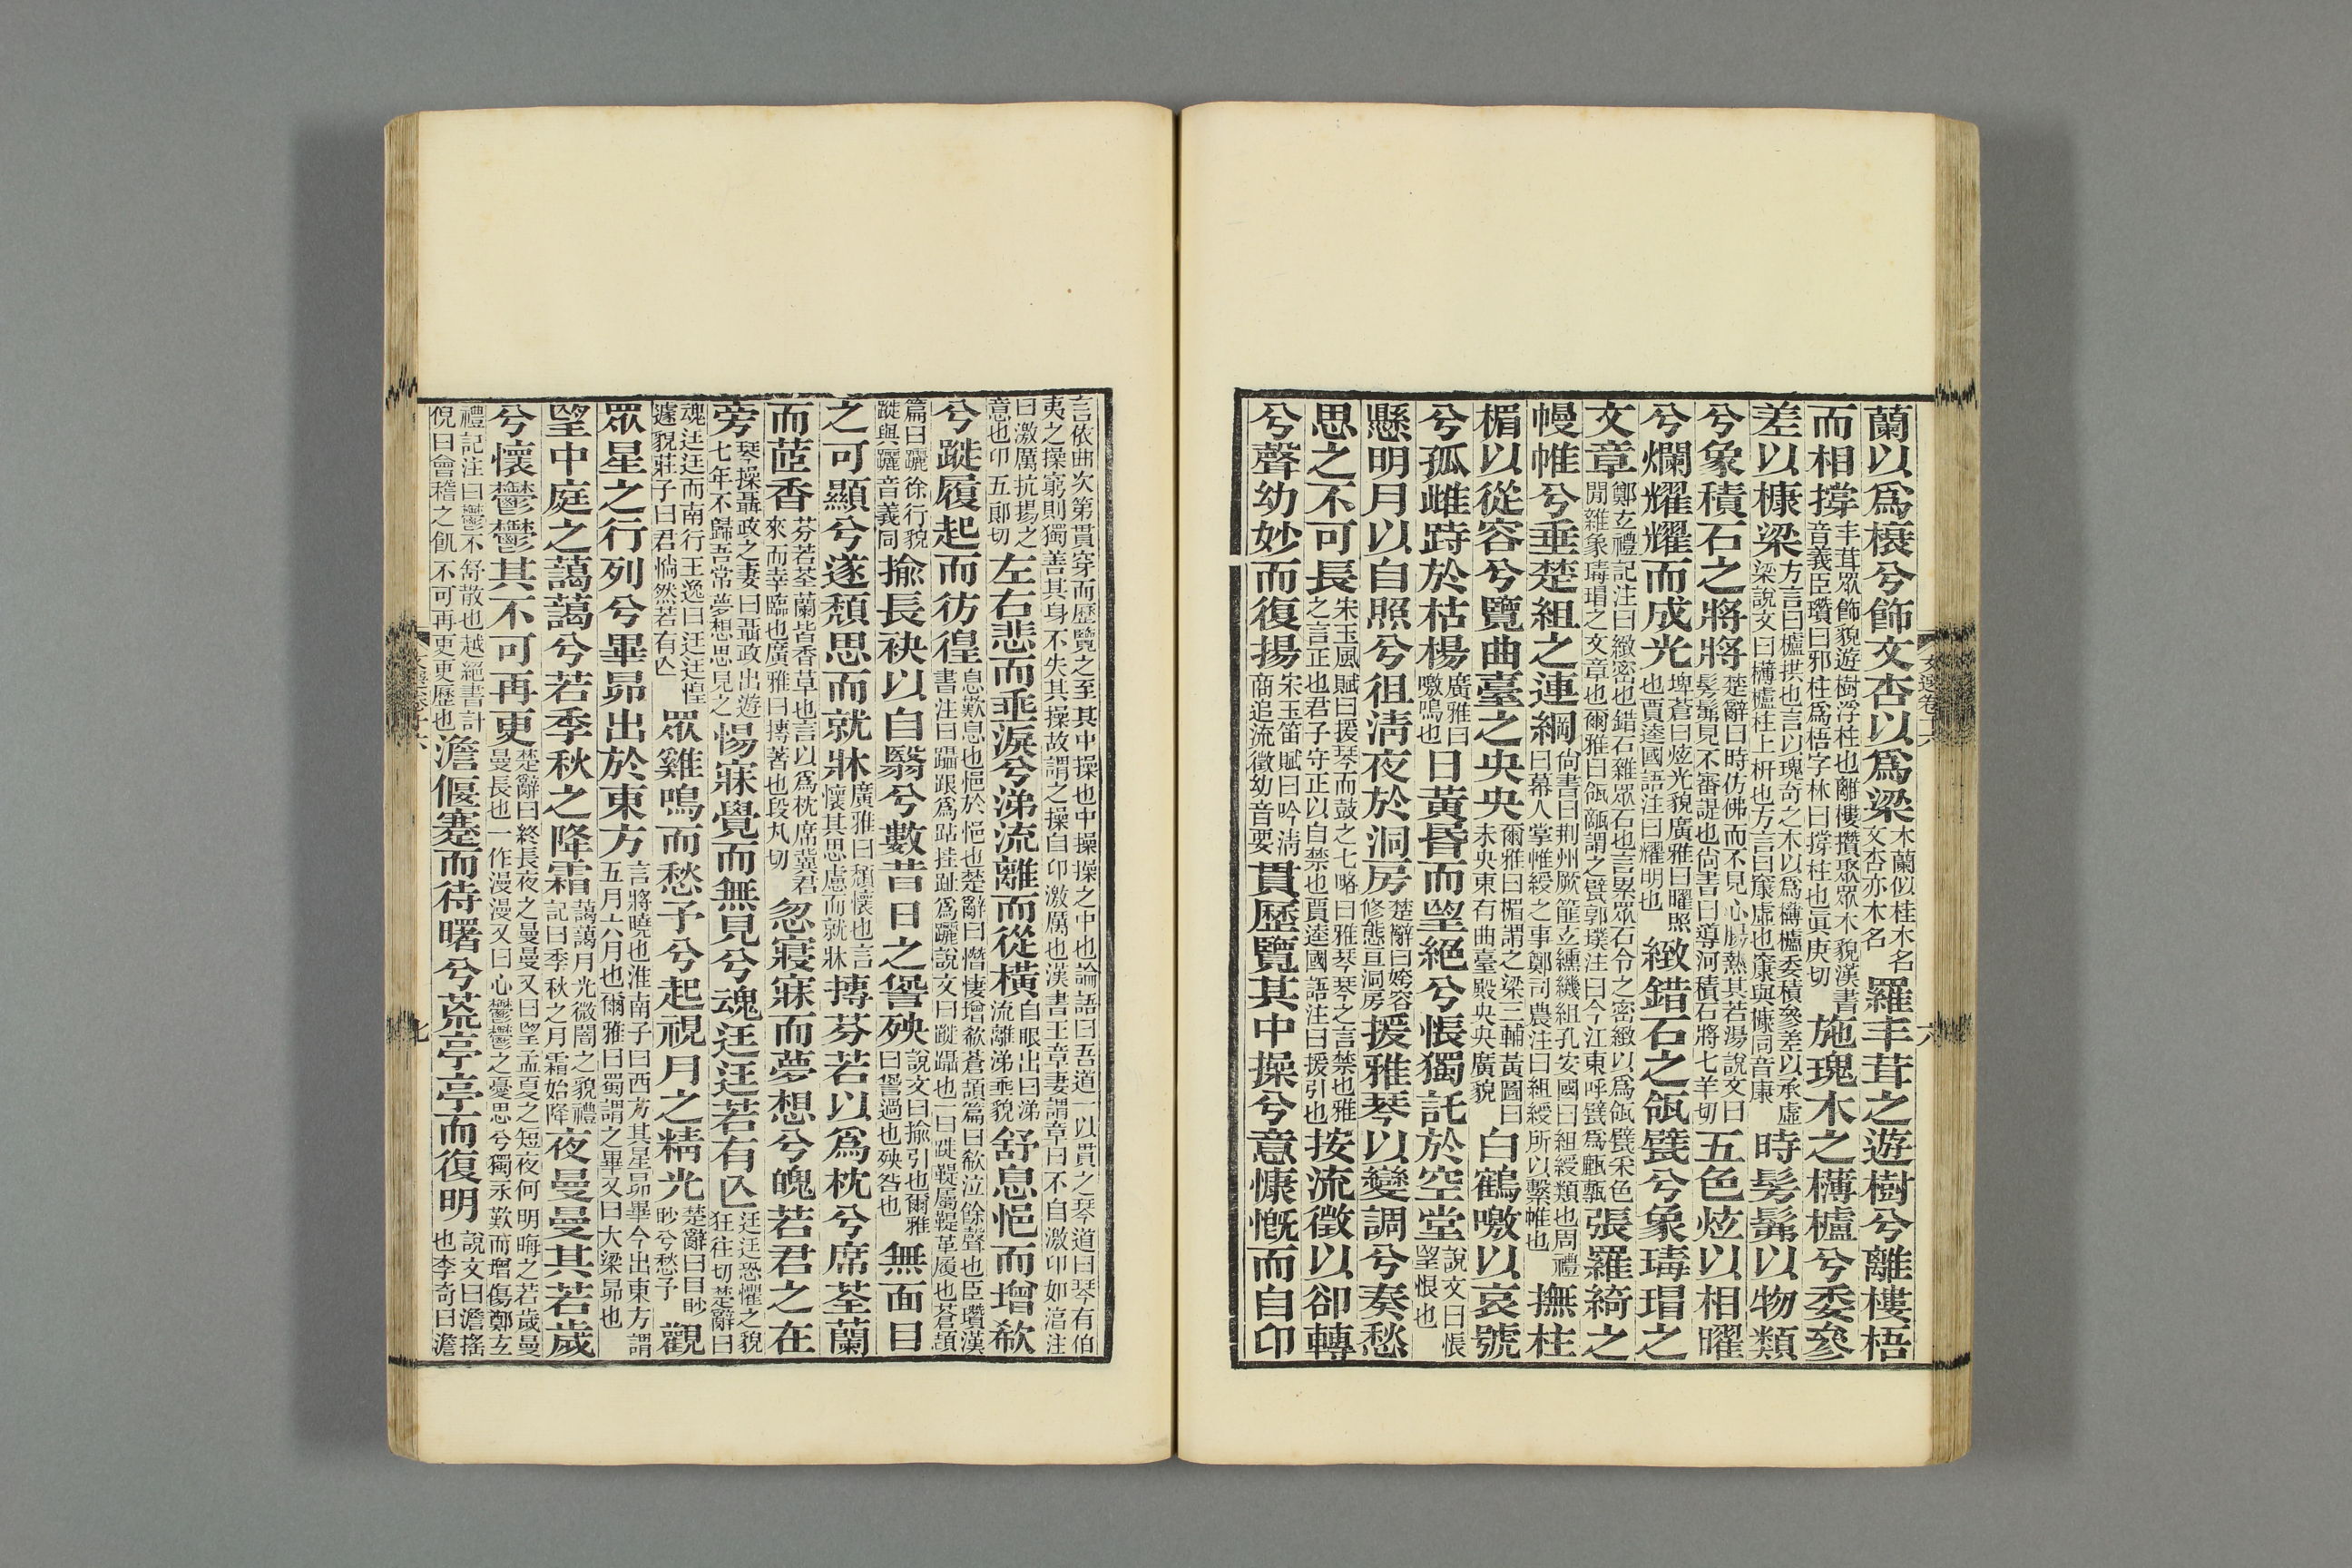 蘭以爲榱兮飾文杏以爲梁木蘭似桂木名文杏亦木名羅丰茸之遊樹兮離樓梧
而相撐丰茸眾飾貌遊樹浮柱也離樓攢聚眾木貌漢書音義臣瓚曰邪柱爲梧字林曰撐柱也眞庚切施瑰木之欂櫨兮委參
差以槺梁方言曰櫨拱也言以瑰奇之木以爲欂櫨委積參差以承虛梁說文曰欂櫨柱上枅也方言曰㝩虛也㝩與槺同音康時髣髴以物類
兮象積石之將將楚辭曰時仿佛而不見心腸熱其若湯說文曰髣髴見不審諟也尙書曰導河積石將七羊切五色炫以相曜
兮爛耀耀而成光埤蒼曰炫光貌廣雅曰曜照也賈逵國語注曰耀明也緻錯石之瓴甓兮象瑇瑁之
文章鄭玄禮記注曰緻密也錯石雜眾石也言累眾石令之密緻以爲瓴甓采色閒雜象瑇瑁之文章也爾雅曰瓴甋謂之甓郭璞注曰今江東呼甓爲甗甎張羅綺之
幔帷兮垂楚組之連綱尙書曰荆州厥篚玄纁纖組孔安國曰組綬類也周禮曰幕人掌帷綬之事鄭司農注曰組綬所以繫帷也撫柱
楣以從容兮覽曲臺之央央爾雅曰楣謂之梁三輔黃圖曰未央東有曲臺殿央央廣貌白鶴噭以哀號
兮孤雌跱於枯楊廣雅曰噭鳴也日黃昏而望絕兮悵獨託於空堂說文曰悵望恨也
懸明月以自照兮徂淸夜於洞房楚辭曰姱容修態亘洞房援雅琴以變調兮奏愁
思之不可長宋玉風賦曰援琴而鼓之七略曰雅琴琴之言禁也雅之言正也君子守正以自禁也賈逵國語注曰援引也按流徵以卻轉
兮聲幼妙而復揚宋玉笛賦曰吟淸商追流徵幼音要貫歷覽其中操兮意慷慨而自卬
言依曲次第貫穿而歷覽之至其中操也中操操之中也論語曰吾道一以貫之琴道曰琴有伯夷之操窮則獨善其身不失其操故謂之操自卬激厲也漢書王章妻謂章曰不自激卬如淳注
曰激厲抗揚之意也卬五郎切左右悲而垂淚兮涕流離而從橫自眼出曰涕流離涕垂貌舒息悒而增欷
兮蹝履起而彷徨息歎息也悒於悒也楚辭曰憯悽增欷蒼頡篇曰欷泣餘聲也臣瓚漢書注曰躡跟爲跕挂趾爲躧說文曰蹝躡也一曰蹝鞮屬鞮革履也蒼頡
篇曰躧徐行貌蹝與躧音義同揄長袂以自翳兮數昔日之諐殃說文曰揄引也爾雅曰諐過也殃咎也無面目
之可顯兮遂頹思而就牀廣雅曰頹懷也言懷其思慮而就牀摶芬若以爲枕兮席荃蘭
而茝香芬若荃蘭皆香草也言以爲枕席冀君來而幸臨也廣雅曰摶著也段丸切忽寢寐而夢想兮魄若君之在
旁琴操聶政之妻曰聶政出遊七年不歸吾常夢想思見之惕寤覺而無見兮魂迋迋若有亾迋迋恐懼之貌狂往切楚辭曰
魂迋迋而南行王逸曰迋迋惶遽貌莊子曰君惝然若有亾眾雞鳴而愁予兮起視月之精光楚辭曰目眇眇兮愁予觀
眾星之行列兮畢昴出於東方言將曉也淮南子曰西方其星昴畢今出東方謂五月六月也爾雅曰蜀謂之畢又曰大梁昴也
望中庭之藹藹兮若季秋之降霜藹藹月光微闇之貌禮記曰季秋之月霜始降夜曼曼其若歲
兮懷鬱鬱其不可再更楚辭曰終長夜之曼曼又曰望孟夏之短夜何明晦之若歲曼曼長也一作漫漫又曰心鬱鬱之憂思兮獨永歎而增傷鄭玄
禮記注曰鬱不舒散也越絕書計倪曰會稽之飢不可再更更歷也澹偃蹇而待曙兮荒亭亭而復明說文曰澹搖也李奇曰澹
文選卷十六
六
七